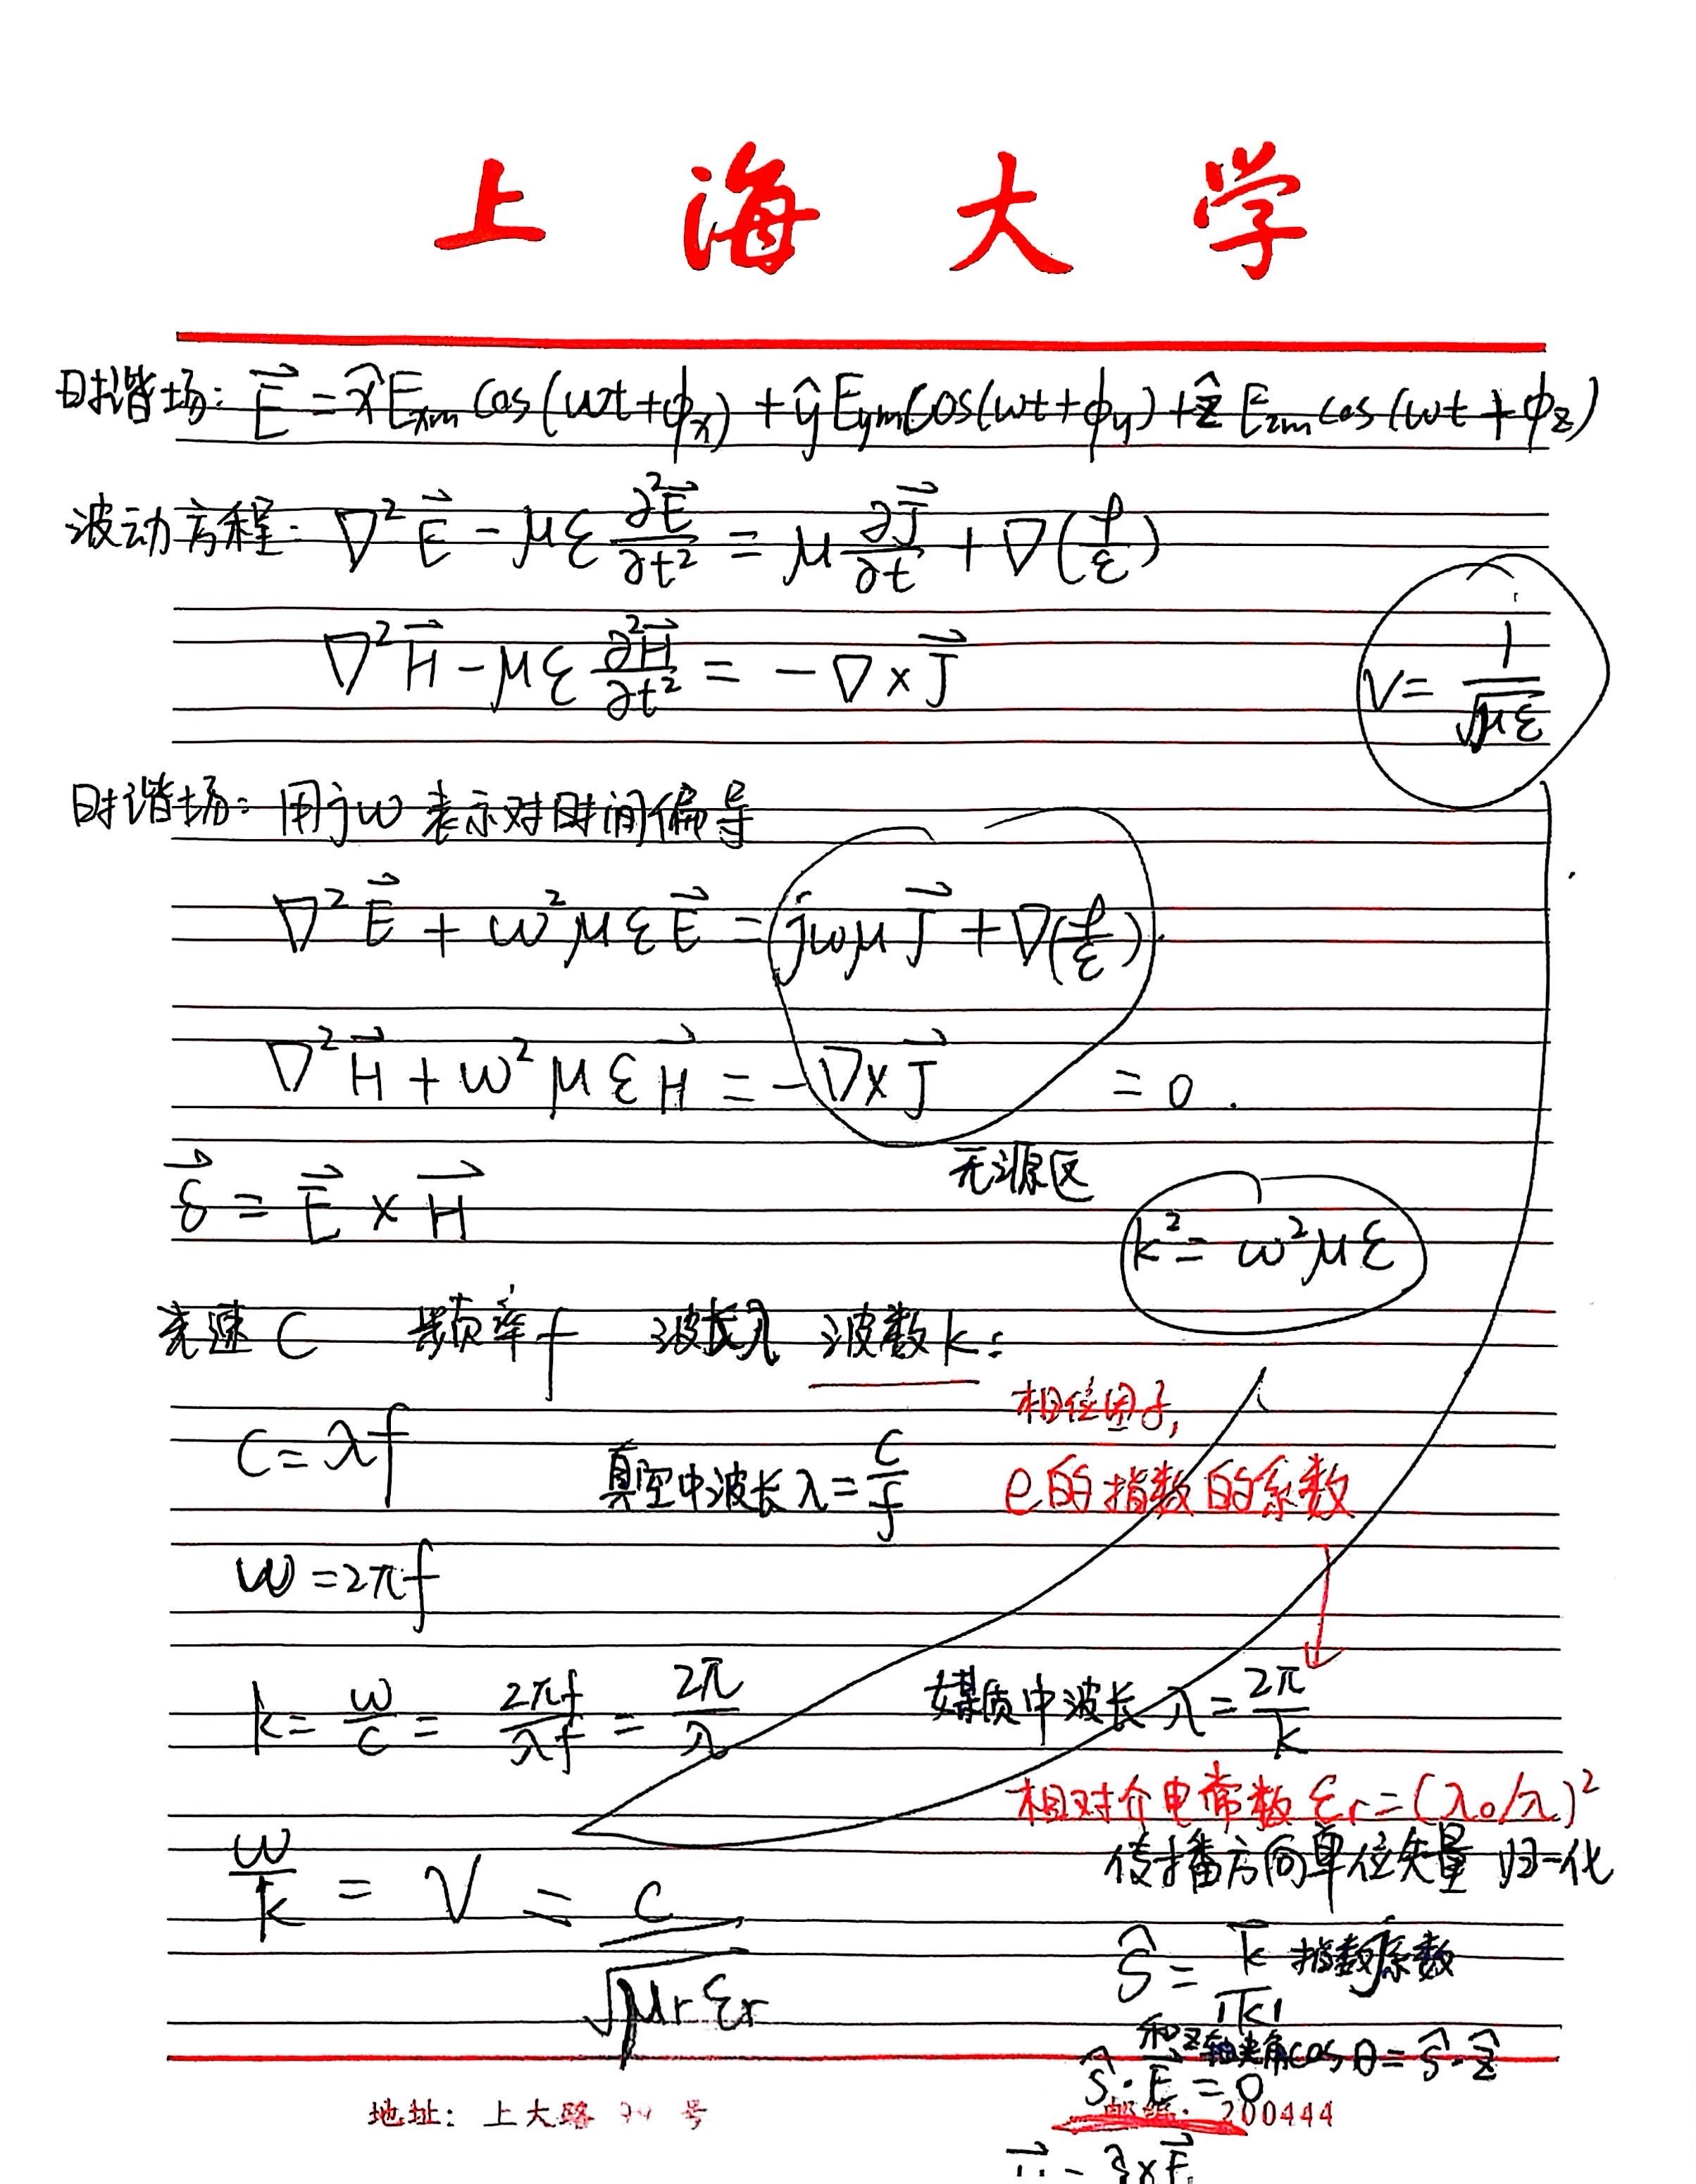 上海大学
时谐场: \vec{E} = \hat{x}E_{xm} cos(ωt+φ_x) + ŷE_{ym}cos(ωt+φ_y) + \hat{z}E_{zm}cos(ωt+φ_z)
波动方程: ∇²\vec{E} - με ∂²\vec{E}/∂t² = μ ∂\vec{J}/∂t + ∇(ρ/ε)
∇²\vec{H} - με ∂²\vec{H}/∂t² = -∇×\vec{J}
V = 1/√(με)
时谐场: 用jω 表示对时间偏导
∇²\vec{E} + ω²με\vec{E} = jωμ\vec{J} + ∇(ρ/ε)
∇²\vec{H} + ω²με\vec{H} = -∇×\vec{J} = 0
无源区
\vec{S} = \vec{E} × \vec{H}
k² = ω²με
光速 C 频率f 波长λ 波数k:
相位因子,
C = λf
真空中波长 λ = C/f
e的指数的系数
ω = 2πf
k = ω/C = 2πf/λf = 2π/λ
媒质中波长 λ = 2π/k
相对介电常数 ε_r = (λ₀/λ)²
传播方向单位矢量 归一化
ω/k = V = C/√(μ_r ε_r)
\hat{S} = \vec{k}/|k| 指数系数
和z轴夹角cosθ = \hat{S}·\hat{z}
\hat{S}·\vec{E} = 0
地址: 上大路 99 号
邮编: 200444
= \hat{S}×\vec{E}